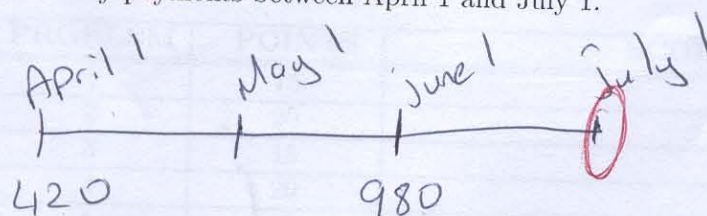 payments between April 1 and July 1.
April 1 May 1 june 1 july 1
420 980